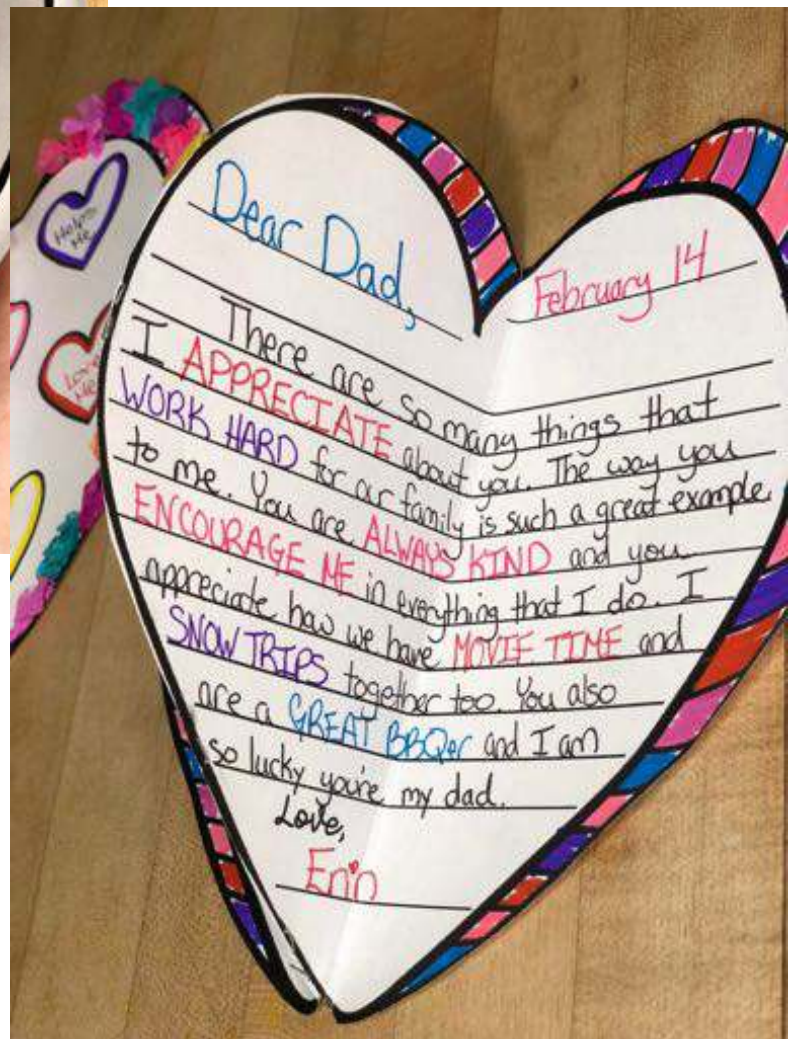 Help
Me
Love
Me
Dear Dad,
February 14
There are so many things that
I APPRECIATE about you. The way you
WORK HARD for our family is such a great example
to me. You are ALWAYS KIND and you
ENCOURAGE ME in everything that I do. I
appreciate how we have MOVIE TIME and
SNOW TRIPS together too. You also
are a GREAT BBQer and I am
so lucky you're my dad.
Love,
Erin